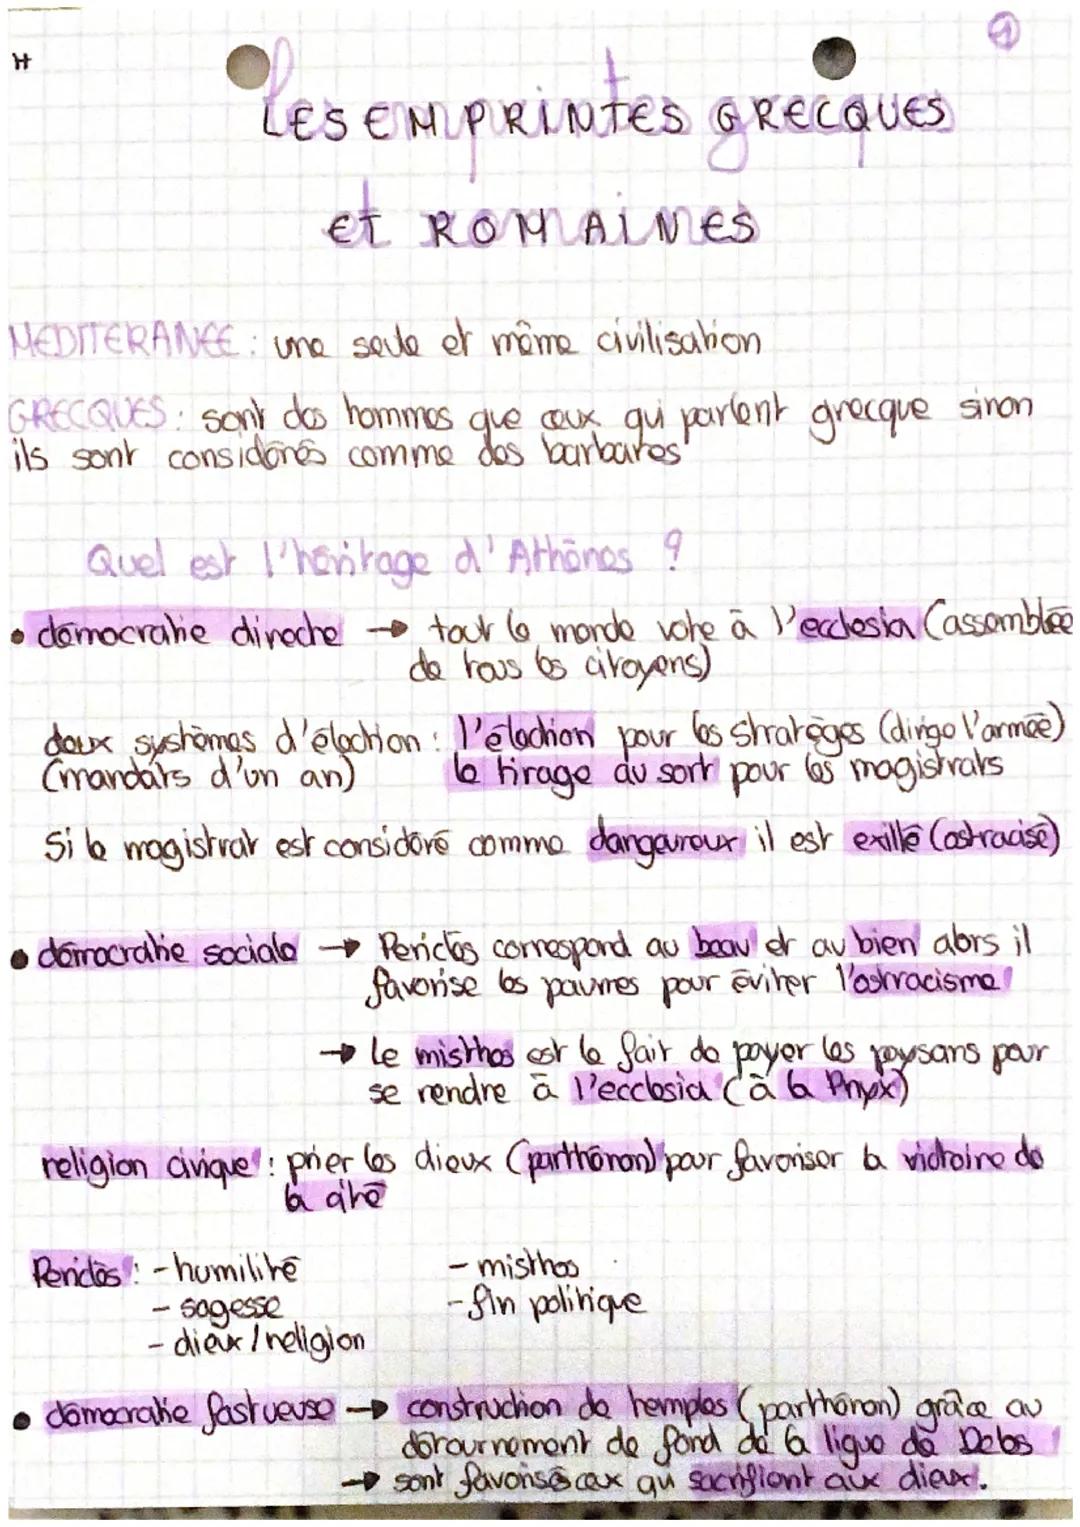 H
1
LES EMPRINTES GRECQUES
et ROMAINES
MEDITERANEE : une seule et même civilisation
GRECQUES : sont des hommes que ceux qui parlent grecque sinon
ils sont considérés comme des barbares
Quel est l'héritage d'Athènes ?
• démocratie directe → tout le monde vote à l'ecclesia (assemblée
de tous les citoyens)
deux systèmes d'élection : l'élection pour les stratèges (dirige l'armée)
(mandats d'un an) le tirage au sort pour les magistrats
Si le magistrat est considéré comme dangeureux il est exillé (ostracisé)
• démocratie sociale → Periclès correspond au beau et au bien alors il
favorise les pauvres pour éviter l'ostracisme
→ Le misthos est le fait de payer les paysans pour
se rendre à l'ecclesia (à la Pnyx)
religion civique : prier les dieux (parthénon) pour favoriser la victoire de
la cité
Periclès : - humilité - misthos
- sagesse - fin politique
- dieux / religion
• démocratie fastueuse → construction de temples (parthénon) grâce au
détournement de fond de la ligue de Delos
→ sont favorisés ceux qui sacrifient aux dieux.